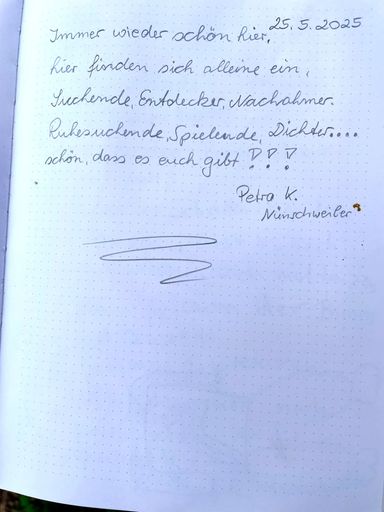 25.5.2025
Immer wieder schön hier,
hier finden sich alleine ein,
Suchende, Entdecker, Nachahmer.
Ruhesuchende, Spielende, Dichter....
schön, dass es euch gibt !!!
Petra K.
Nünschweiler